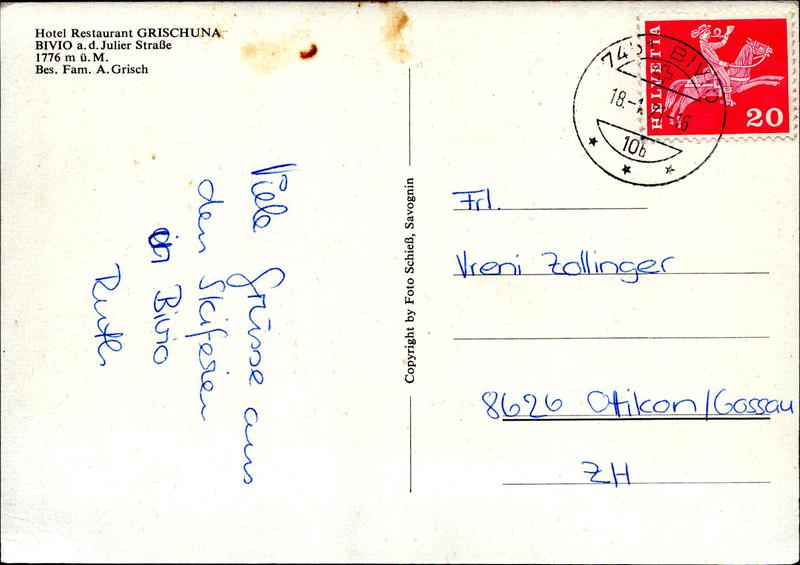 Hotel Restaurant GRISCHUNA
BIVIO a.d. Julier Straße
1776 m ü. M.
Bes. Fam. A. Grisch
Viele Grüsse aus
den Skiferien
in Bivio
Ruth
Copyright by Foto Schieß, Savognin
HELVETIA
20
BIVIO
18.-
-16
10b
Frl.
Vreni Zollinger
8626 Otikon/Gossau
ZH